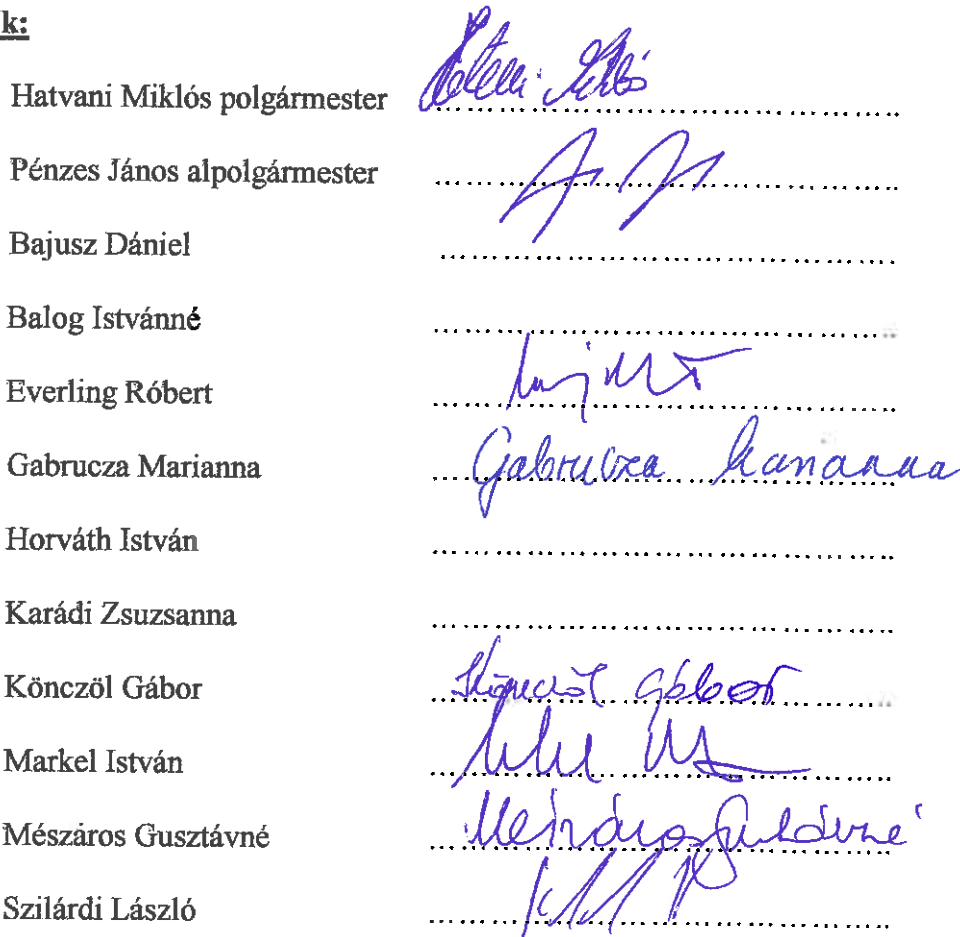 k:
Hatvani Miklós polgármester
Pénzes János alpolgármester
Bajusz Dániel
Balog Istvánné
Everling Róbert
Gabrucza Marianna Gabrucza Marianna
Horváth István
Karádi Zsuzsanna
Könczöl Gábor Könczöl Gábor
Markel István
Mészáros Gusztávné Mészáros Gusztávné
Szilárdi László